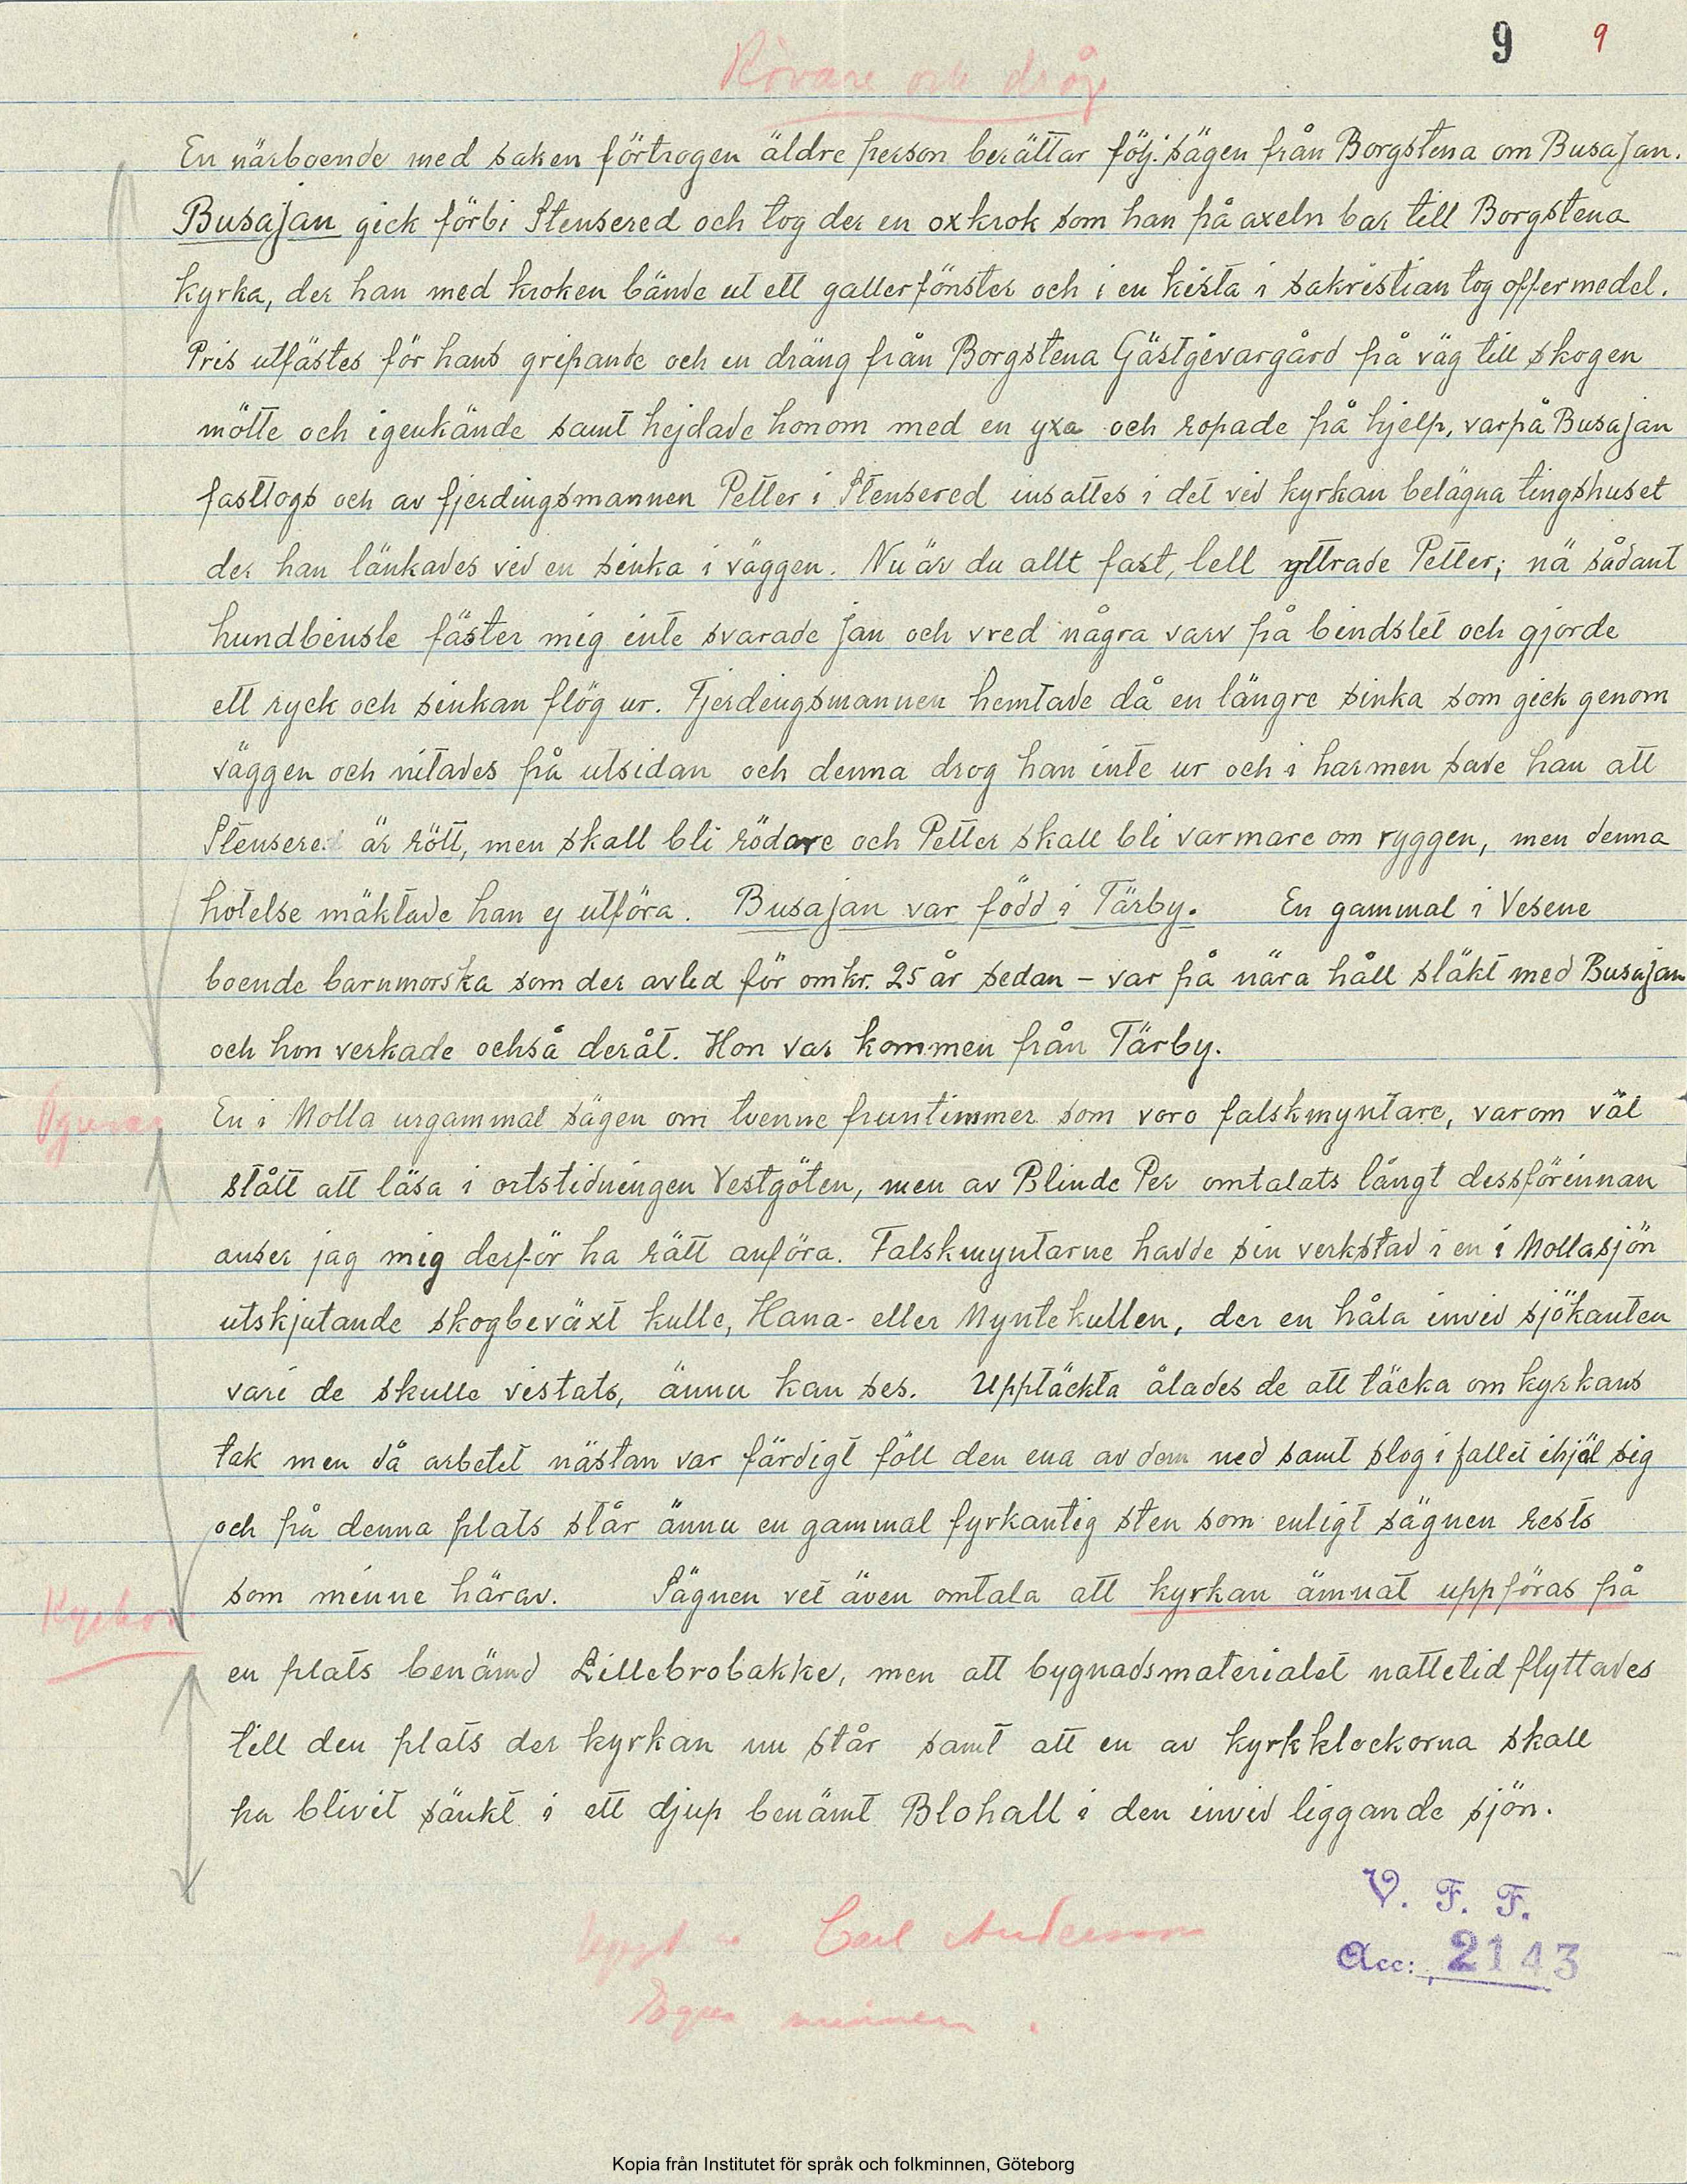 9 9
Rövare och dråp
En närboende med saken förtrogen äldre person berättar följ. sägen från Borgstena om Busajan.
Busajan gick förbi Stensered och tog der en oxkrok som han på axeln bar till Borgstena
kyrka, der han med kroken bände ut ett gallerfönster och i en kista i sakristian tog offermedel.
Pris utfästes för hans gripande och en dräng från Borgstena Gästgivargård på väg till skogen
mötte och igenkände samt hejdade honom med en yxa och ropade på hjelp, varpå Busajan
fasttogs och av fjerdingsmannen Petter i Stensered insattes i det vid kyrkan belägna tingshuset
der han länkades vid en sinka i väggen. Nu är du allt fast, lell yttrade Petter; nä sådant
hundbinsle fäster mig inte svarade Jan och vred några varv på bindslet och gjorde
ett ryck och sinkan flög ur. Fjerdingsmannen hemtade då en längre sinka som gick genom
väggen och nitades på utsidan och denna drog han inte ur och i harmen sade han att
Stensered är rött, men skall bli rödare och Petter skall bli varmare om ryggen, men denna
hotelse mäktade han ej utföra. Busajan var född i Tärby. En gammal i Vesene
boende barnmorska som der avled för omkr. 25 år sedan – var på nära håll släkt med Busajan
och hon verkade också deråt. Hon var kommen från Tärby.
En i Molla urgammal sägen om tvenne fruntimmer som voro falskmyntare, varom väl
stått att läsa i ortstidningen Vestgöten, men av Blinde Per omtalats långt dessförinnan
anser jag mig derför ha rätt anföra. Falskmyntarne hadde sin verkstad i en i Mollasjön
utskjutande skogbeväxt kulle, Hana- eller Myntekullen, der en håla invid sjökanten
vari de skulle vistats, ännu kan ses. Upptäckta ålades de att täcka om kyrkans
tak men då arbetet nästan var färdigt föll den ena av dem ned samt slog i fallet ihjäl sig
och på denna plats står ännu en gammal fyrkantig sten som enligt sägnen rests
som minne härav. Sägnen vet även omtala att kyrkan ämnat uppföras på
Kyrkor
en plats benämd Lillebrobakke, men att bygnadsmaterialet nattetid flyttades
till den plats der kyrkan nu står samt att en av kyrkklockorna skall
ha blivit sänkt i ett djup benämt Blohall i den invid liggande sjön.
V. F. F.
Carl Andersson
Acc: 2143
Egna minnen.
Kopia från Institutet för språk och folkminnen, Göteborg